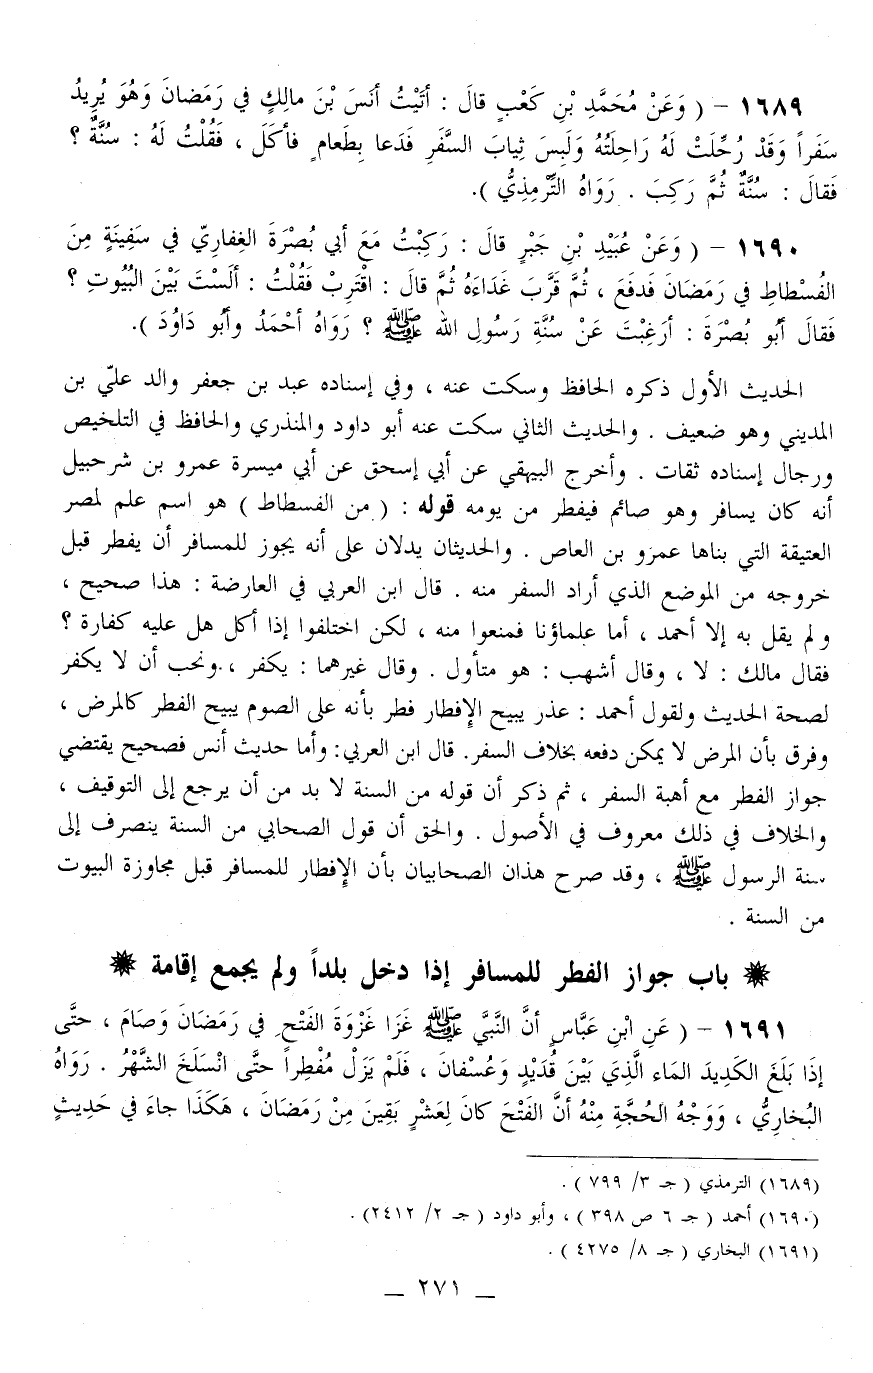 ١٦٨٩ - ( وَعَنْ مُحَمَّدِ بْنِ كَعْبٍ قالَ : أتَيْتُ أنَسَ بْنَ مالِكٍ في رَمَضانَ وَهُوَ يُرِيدُ
سَفَراً وَقَدْ رُحِّلَتْ لَهُ رَاحِلَتُهُ وَلَبِسَ ثِيابَ السَّفَرِ فَدَعا بِطَعامٍ فأكَلَ ، فَقُلْتُ لَهُ : سُنَّةٌ ؟
فَقالَ : سُنَّةٌ ثُمَّ رَكِبَ . رَوَاهُ التِّرْمِذِيُّ ).
١٦٩٠ - ( وَعَنْ عُبَيْدِ بْنِ جَبْرٍ قالَ : رَكِبْتُ مَعَ أبي بُصْرَةَ الغِفارِيّ في سَفِينَةٍ مِنَ
الفُسْطاطِ في رَمَضَانَ فَدفَعَ ، ثُمَّ قَرَّبَ غَدَاءَهُ ثُمَّ قالَ : اقْتَرِبْ فَقُلْتُ : ألَسْتَ بَيْنَ البُيُوتِ ؟
فَقالَ أبُو بُصْرَةَ : أرَغِبْتَ عَنْ سُنَّةِ رَسُولِ الله ﷺ ؟ رَوَاهُ أحْمَدُ وأبُو دَاوُدَ ).
الحديث الأول ذكره الحافظ وسكت عنه ، وفي إسناده عبد بن جعفر والد عليّ بن
المديني وهو ضعيف . والحديث الثاني سكت عنه أبو داود والمنذري والحافظ في التلخيص
ورجال إسناده ثقات . وأخرج البيهقي عن أبي إسحق عن أبي ميسرة عمرو بن شرحبيل
أنه كان يسافر وهو صائم فيفطر من يومه قوله : ( من الفسطاط ) هو اسم علم لمصر
العتيقة التي بناها عمرو بن العاص . والحديثان يدلان على أنه يجوز للمسافر أن يفطر قبل
خروجه من الموضع الذي أراد السفر منه . قال ابن العربي في العارضة : هذا صحيح ،
ولم يقل به إلا أحمد ، أما علماؤنا فمنعوا منه ، لكن اختلفوا إذا أكل هل عليه كفارة ؟
فقال مالك : لا ، وقال أشهب : هو متأول . وقال غيرهما : يكفر ، ونحب أن لا يكفر
لصحة الحديث ولقول أحمد : عذر يبيح الإفطار فطر بأنه على الصوم يبيح الفطر كالمرض ،
وفرق بأن المرض لا يمكن دفعه بخلاف السفر. قال ابن العربي: وأما حديث أنس فصحيح يقتضي
جواز الفطر مع أهبة السفر ، ثم ذكر أن قوله من السنة لا بد من أن يرجع إلى التوقيف ،
والخلاف في ذلك معروف في الأصول . والحق أن قول الصحابي من السنة ينصرف إلى
سنة الرسول ﷺ ، وقد صرح هذان الصحابيان بأن الإفطار للمسافر قبل مجاوزة البيوت
من السنة .
✸ باب جواز الفطر للمسافر إذا دخل بلداً ولم يجمع إقامة ✸
١٦٩١ - ( عَنِ ابْنِ عَبَّاسٍ أنَّ النَّبِيَّ ﷺ غَزَا غَزْوَةَ الفَتْحِ في رَمَضَانَ وَصَامَ ، حتَّى
إذَا بَلَغَ الكَدِيدَ المَاء الَّذِي بَيْنَ قُدَيْدٍ وَعُسْفانَ ، فَلَمْ يَزَلْ مُفْطِراً حتَّى انْسَلَخَ الشَّهْرُ . رَوَاهُ
البُخارِيُّ ، وَوَجْهُ الحُجَّةِ مِنْهُ أنَّ الفَتْحَ كانَ لِعَشْرٍ بَقِينَ مِنْ رَمَضَانَ ، هَكَذَا جاءَ في حَدِيثٍ
(١٦٨٩) الترمذي ( جـ ٣/ ٧٩٩ ) .
(١٦٩٠) أحمد ( جـ ٦ ص ٣٩٨ ) ، وأبو داود ( جـ ٢/ ٢٤١٢) .
(١٦٩١) البخاري ( جـ ٨/ ٤٢٧٥ ) .
_ ٢٧١ _